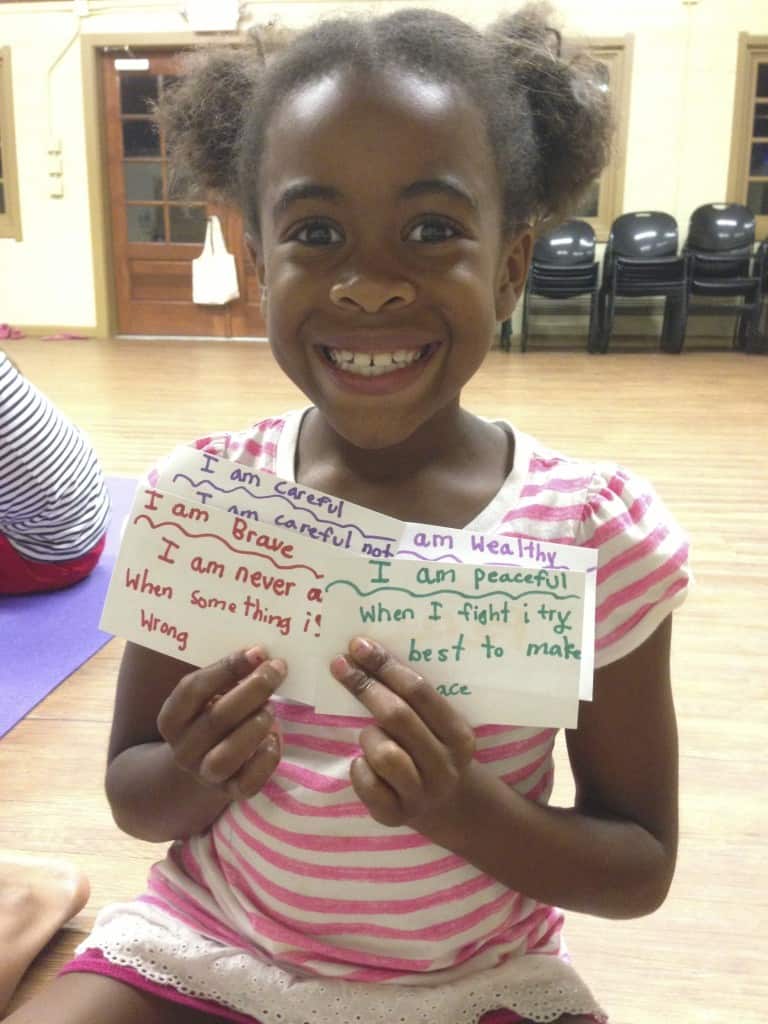 I am careful
I am careful not
I am Brave
I am never
when something
wrong
am wealthy
I am peaceful
when I fight i try
best to make
ace